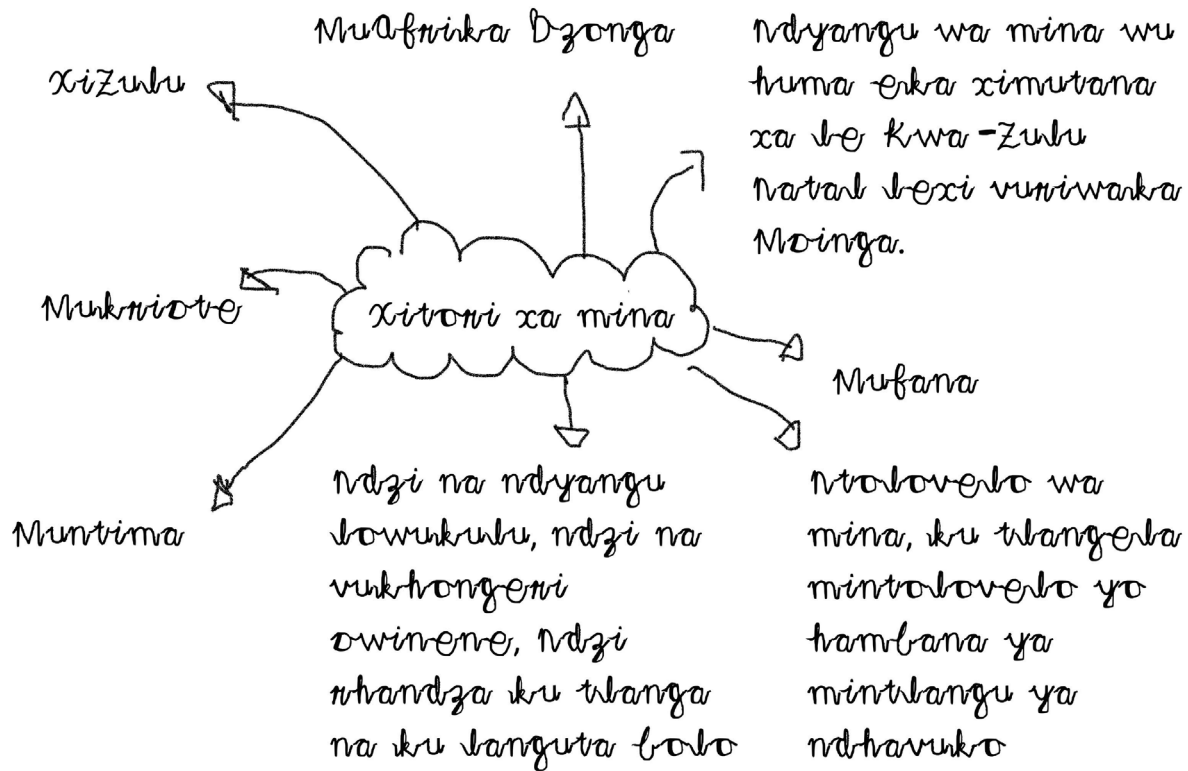 MuAfrika Dzonga
Ndyangu wa mina wu
huma eka ximutana
xa le Kwa-Zulu
Natal lexi vuriwaka
Msinga.
xiZulu
Mukriste
Xitori xa mina
Mufana
Muntima
Ndzi na ndyangu
lowukulu, ndzi na
vukhongeri
swinene, Ndzi
rhandza ku tlanga
na ku languta bolo
Ntolovelo wa
mina, ku tlangela
mintolovelo yo
hambana ya
mintlangu ya
ndhavuko